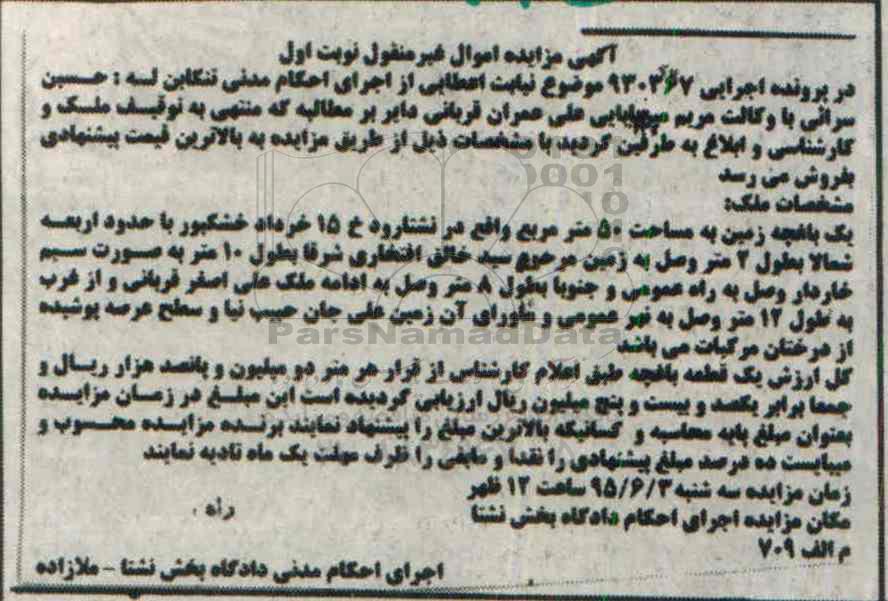 آگهی مزایده اموال غیرمنقول نوبت اول
در پرونده اجرایی ۹۳۰۳۶۷ موضوع نیابت اعطایی از اجرای احکام مدنی تنکابن لـه : حسـین
سرائی با وکالت مریم میربابایی علی عمران قربانی دایر بر مطالبه که منتهی به توقیـف ملـک و
کارشناسی و ابلاغ به طرفین گردید با مشخصات ذیل از طریق مزایده به بالاترین قیمت پیشنهادی
بفروش می رسد
مشخصات ملک:
یک باغچه زمین به مساحت ۵۰ متر مربع واقع در نشتارود خ ۱۵ خرداد خشکبور با حدود اربعـه
شمالا بطول ۲ متر وصل به زمین مرحوم سید خالق افتخاری شرقا بطول ۱۰ متر به صـورت سـیم
خاردار وصل به راه عمومی و جنوبا بطول ۸ متر وصل به ادامه ملک علی اصغر قربانی و از غرب
به طول ۱۲ متر وصل به نهر عمومی و ماورای آن زمین علی جان حبیب نیا و سطح عرصه پوشیده
از درختان مرکبات می باشد
کل ارزش یک قطعه باغچه طبق اعلام کارشناس از قرار هر متر دو میلیون و پانصد هزار ریـال و
جمعا برابر یکصد و بیست و پنج میلیون ریال ارزیابی گردیده است این مبلـغ در زمـان مزایـده
بعنوان مبلغ پایه محاسبه و کسانیکه بالاترین مبلغ را پیشنهاد نمایند برنـده مزایـده محسـوب و
میبایست ده درصد مبلغ پیشنهادی را نقدا و مابقی را ظرف مهلت یک ماه تادیه نمایند
زمان مزایده سه شنبه ۹۵/۶/۳ ساعت ۱۲ ظهر
مکان مزایده اجرای احکام دادگاه بخش نشتا
م الف ۷۰۹
اجرای احکام مدنی دادگاه بخش نشتا – ملازاده
ParsNamadData